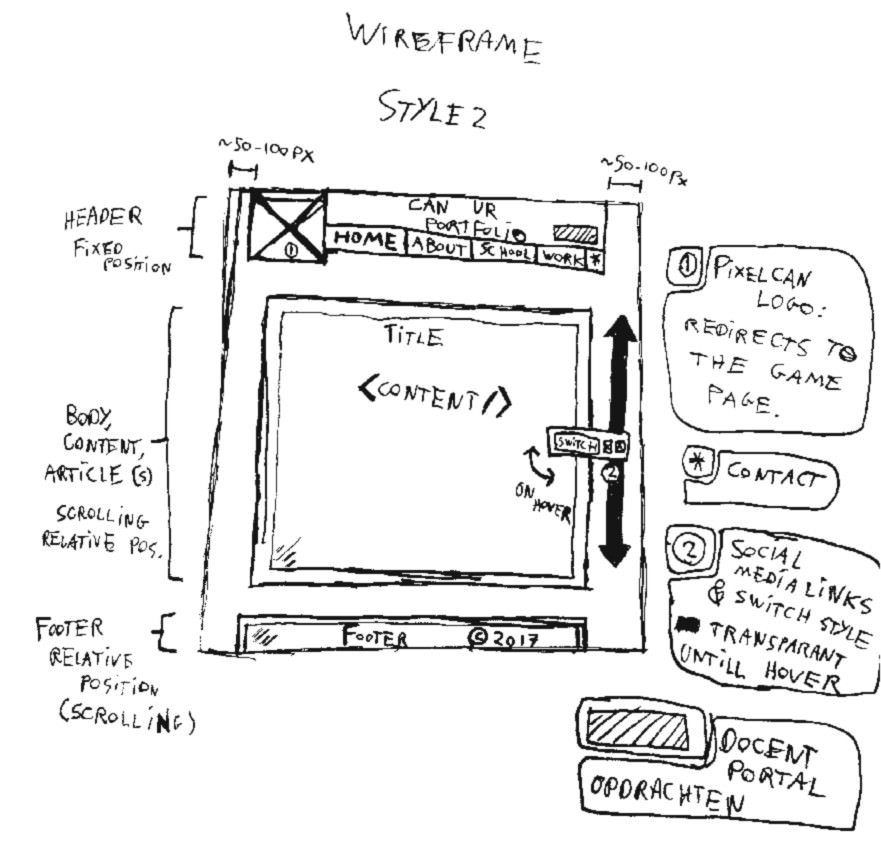 WIREFRAME
STYLE 2
~50-100PX
~50-100Px
HEADER
FIXED
POSITION
CAN UR
PORTFOLIO
① HOME ABOUT SCHOOL WORK *
BODY,
CONTENT,
ARTICLE (S)
SCROLLING
RELATIVE POS.
TITLE
<CONTENT/>
SWITCH
②
ON
HOVER
FOOTER
RELATIVE
POSITION
(SCROLLING)
FOOTER © 2017
① PIXELCAN
LOGO:
REDIRECTS TO
THE GAME
PAGE.
* CONTACT
② SOCIAL
MEDIA LINKS
& SWITCH STYLE
TRANSPARANT
UNTILL HOVER
DOCENT
PORTAL
OPDRACHTEN